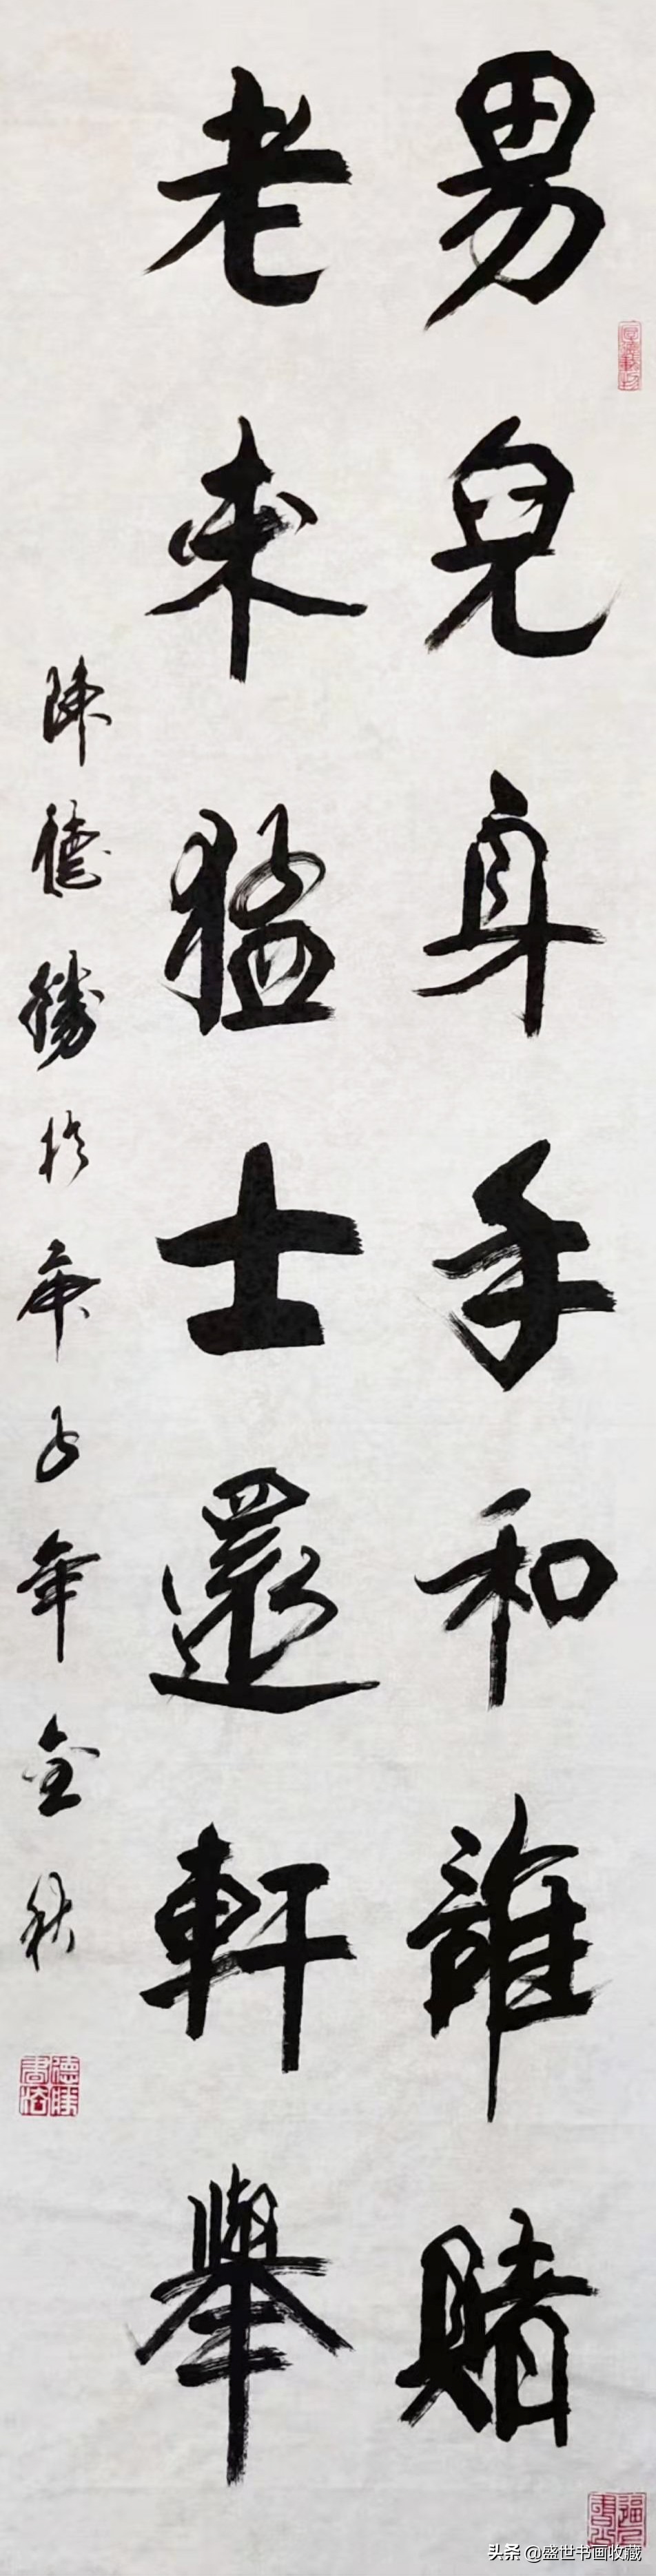 男兒身手和誰賭
老来猛士還軒舉
陳德勝於庚子年金秋
厚德載物
德勝書格
头条 @盛世书画收藏